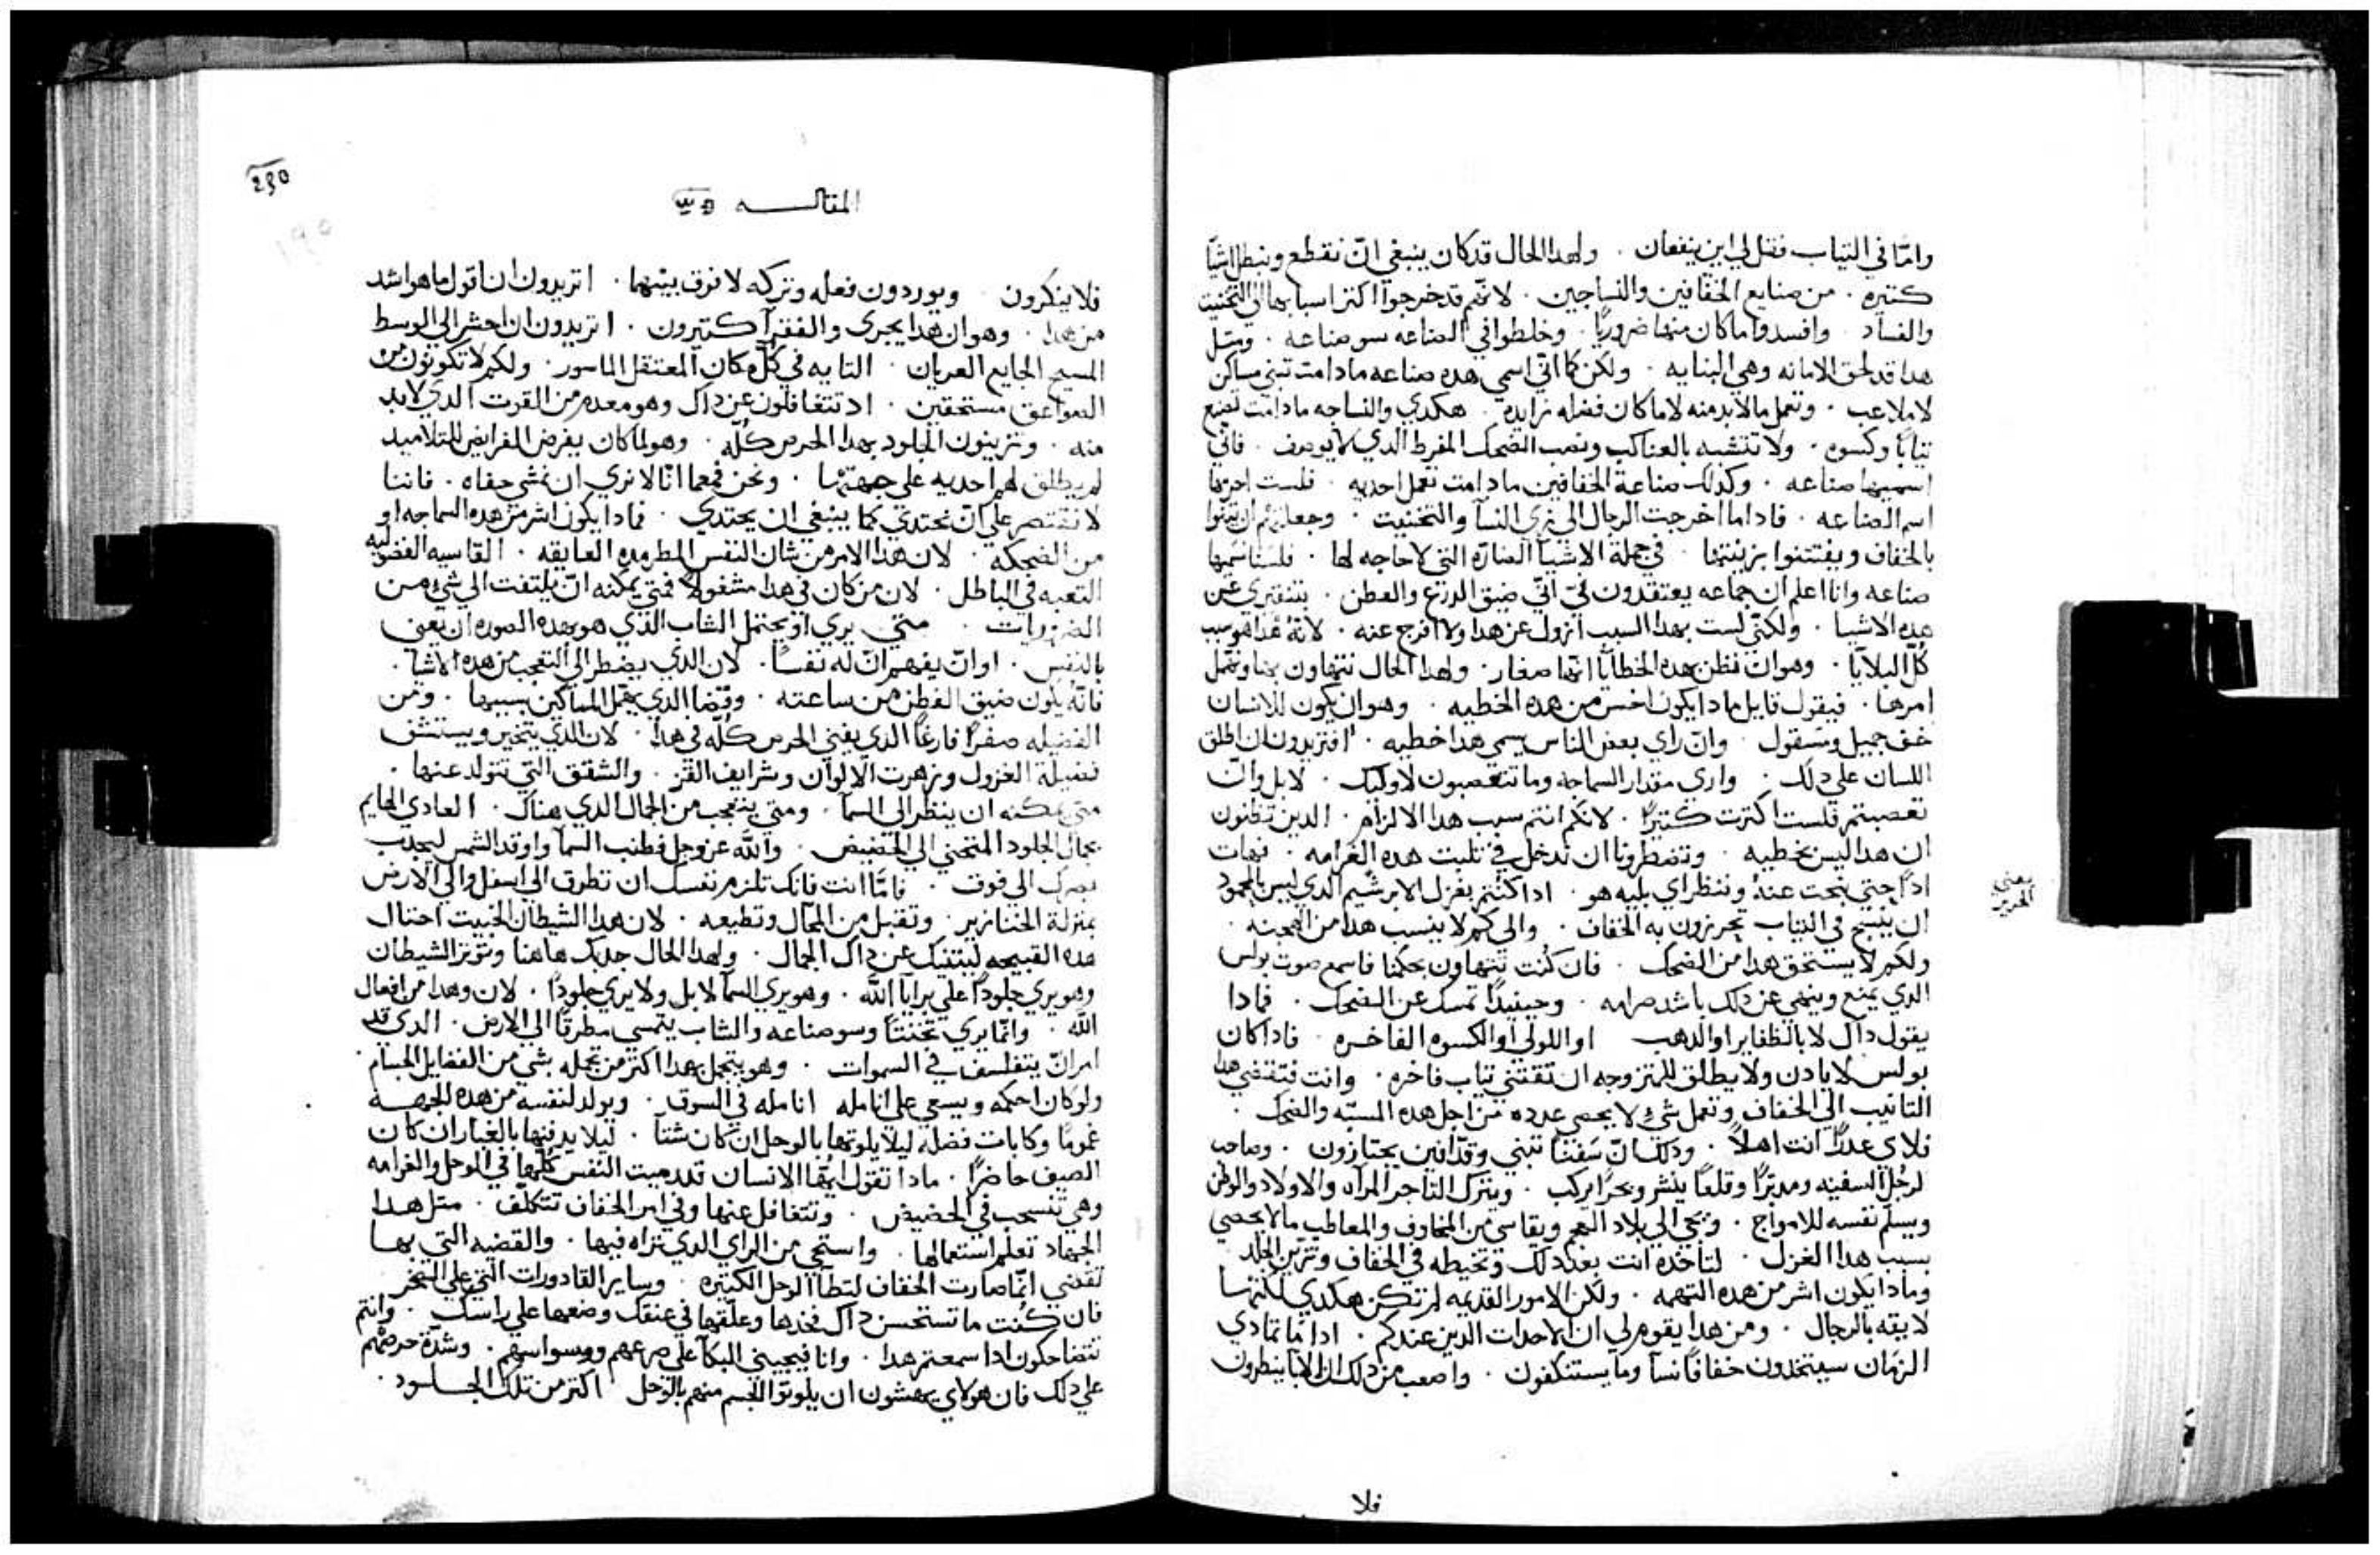 وامّا في التياب فقل لي اين ينفعان . ولهدا الحال قد كان ينبغي انّ نقطع ونبطل اشيّا
كتيره . من صنايع الخفّافين والنساجين . لانّهم قد خرجوا اكتر اسبابها الي التخنيت
والفساد . وافسدوا ما كان منها ضروريًا . وخلطوا في الصناعه سو صناعه . ومتل
هدا قد لحق الامانه وهي البنايه . ولكن كما انّي اسمي هده صناعه ما دامت تبني مساكن
لا ملاعب . وتعمل ما لابد منه لا ما كان فضله زايده . هكدي والنساجه ما دامت تصنع
تيابًا وكسوه . ولا تتشبه بالعناكب وتصب الضحك المفرط الدي لا يوصف . فانّي
اسميها صناعه . وكدلك صناعة الخفافين ما دامت تعمل احديه . فلست احرمها
اسم الصناعه . فادا ما اخرجت الرجال الي زي النسآ والتخنيت . وجعلتهم ان
بالخفاف ويفتتنوا بزينتها . في جملة الاشيآ الضارّه التي لا حاجه لها . فلسنا نسميها
صناعه وانا اعلم ان جماعه يعتقدون فيّ انّي ضيق الدرع والفطن . بتفتيري عن
هده الاشيا . ولكنّي لست بهدا السبب ازول عن هدا ولا افرج عنه . لانّه هدا هو سبب
كُلّ البلايّا . وهو ان نظن بهده الخطايّا انّها صغار . ولهدا الحال نتهاون بها ونهمل
امرها . فيقول قايل مادا يكون اخس من هده الخطيه . وهو ان يكون للانسان
خف جميل ومسقول . وان راي بعض الناس يسمي هدا خطيه . افتريدون ان اطلق
اللسان علي دلك . واري مقدار السماجه وما تتعصبون لاوليك . لا بل وان
تعصبتم فلست اكترت كتيرًا . لانّكم انتم سبب هدا الالزام . الدين تظنون
ان هدا ليس بخطيه . وتضطرونا ان ندخل في تلبت هده الغرامه . فهات
ادًا حتي نبحت عنهُ وننظر اي بليه هو . ادا كنتم بغزل الابرشيم الدي ليس بالمحمود
يعني
الحرير
ان ينسج في التياب تحرزون به الخفاف . والي كم لا ينسب هدا من الهجنه .
ولكم لا يستحق هدا من الضحك . فان كُنت تتهاون بحكمنا فاسمع صوت بولس
الدي يمنع وينهي عن دلك باشد صرامه . وحينيدًا تمسك عن الضحك . فمادا
يقول داك لا بالظفاير او الدهب او اللولو او الكسوه الفاخره . فادا كان
بولس لا يادن ولا يطلق للمتزوجه ان تقتني تياب فاخره . وانت فتقتضي هدا
التانيب الي الخفاف وتعمل شيء لا يحصي عدده من اجل هده المسبّه والضحك .
فلاي عددًا انت اهلاً . ودلك انّ سَفننًا تبني وقدّافين يجتازون . وصاحب
لرجُل السفينه ومدبرًا وقلعًا ينشر وبحرًا يركب . ويترك التاجر المرآه والاولاد والوطن
ويسلم نفسه للامواج . ويجي الي بلاد العجم ويقاسي من المخاوف والمعاطب ما لا يحصي
بسبب هدا الغزل . لتاخده انت بعد دلك وتخيطه في الخفاف وتزين الجلد
ومادا يكون اشر من هده التهمه . ولكن الامور القديمه لم تكن هكدي لكنها
لايقه بالرجال . ومن هدا يقوم لي ان الاحدات الدين عندكم . ادا ما تمادي
الزمان سيتخدون خفافًا نسآ وما يستنكفون . واصعب من دلك ان الابا ينظرون
فلا
٢٩٥
المقالـــه
فلا ينكرون . ويوردون فعله وتركه لا فرق بينهما . اتريدون ان اقول ما هو اشد
من هدا . وهو ان هدا يجري والفقرآ كتيرون . اتريدون ان احضر الي الوسط
المسيح الجايع العريان . التايه في كُلّ مكان المعتقل الماسور . ولكم لا تكونون من
الصواعق مستحقين . اد تتغافلون عن داك وهو معدم من القوت الدي لابد
منه . وتزينون الجلود بهدا الحرص كُله . وهو لما كان يفرض الفرايض للتلاميد
لم يطلق لهم احديه علي جهتها . ونحن فمع انّا لا نري ان نمشي حفاه . فاننا
لا نقتصر علي انّ نحتدي كما ينبغي ان يحتدي . فمادا يكون اشر من هده السماجه او
من الضحكه . لان هدا الامر من شان النفس العايقه . القاسيه الفضوليه
التعبه في الباطل . لان من كان في هدا مشغولاً فمتي يمكنه انّ يلتفت الي شيء من
الضروريات . متي يري او يحتمل الشاب الدي هو بهده الصوره ان يعني
بالنفس . او انّ يفهم انّ له نفسًا . لان الدي يضطر الي التعجب من هده الاشيا .
فانّه يكون ضيق الفطن من ساعته . وفضًا الدي يهمل المساكين بسببها . ومن
الفضيله صفرًا فارغًا الدي يفني الحرص كُلّه في هدا . لان الدي يتخير ويستشف
فضيلة الغزول وزهرت الالوان وشرايف القز . والشقق التي تتولد عنها .
متي يمكنه ان ينظر الي السمآ . ومتي يتعجب من الجمال الدي هناك . العادي الهايم
بجمال الجلود المنحني الي الحضيض . والله عز وجل فطنب السمآ واوقد الشمس ليجدب
بصرك الي فوق . فامّا انت فانك تلزم نفسك ان تطرق الي اسفل والي الارض
بمنزلة الخنازير . وتقبل من المحال وتطيعه . لان هدا الشيطان الخبيت احتال
هده القبيحه ليتنيك عن داك الجمال . ولهدا الحال جدبك هاهنا وتوتر الشيطان
وهو يري جلودًا علي برايآ الله . وهو يري السمآ لا بل ولا يري جلودًا . لان وهدا من افعال
الله . وانّما يري تخنتًا وسو صناعه والشاب يتمسي مطرقًا الي الارض . الدي قد
امر انّ يتفلسف في السموات . وهو يتجمل بهدا اكتر من تجمله بشي من الفضايل الجسام .
ولو كان احكمه ويسعي علي انامله انامله في السوق . ويولد لنفسه من هده الجهــه
غمومًا وكابات فضله ليلا يلوتها بالوحل ان كان شتآ . ليلا يدفنها بالغبار ان كان
الصيف حاضرًا . مادا تقول ايّها الانسان قد رميت النفس كُلّها في الوحل والغرامه
وهي تنسحب في الحضيض . وتتغافل عنها وفي امر الخفاف تتكلّف . متل هدا
الجهاد تعلم استعمالها . واستحي من الراي الدي تراه فيها . والقضيه التي بهــا
تقضي انّما صارت الخفاف لتطآ الوحل الكتيره . وساير القادورات التي علي الصخر
فان كُنت ما تستحسن داك فخدها وعلّقها في عنقك وضعها علي راسك . وانتم
تتضاحكون ادا سمعتم هدا . وانا فيجيني البكآ علي صرعهم ووسواسهم . وشدّة حرصهم
علي دلك فان هولاي يهشون ان يلوتوا الجسم منهم بالوحل اكتر من تلك الجـــلود .